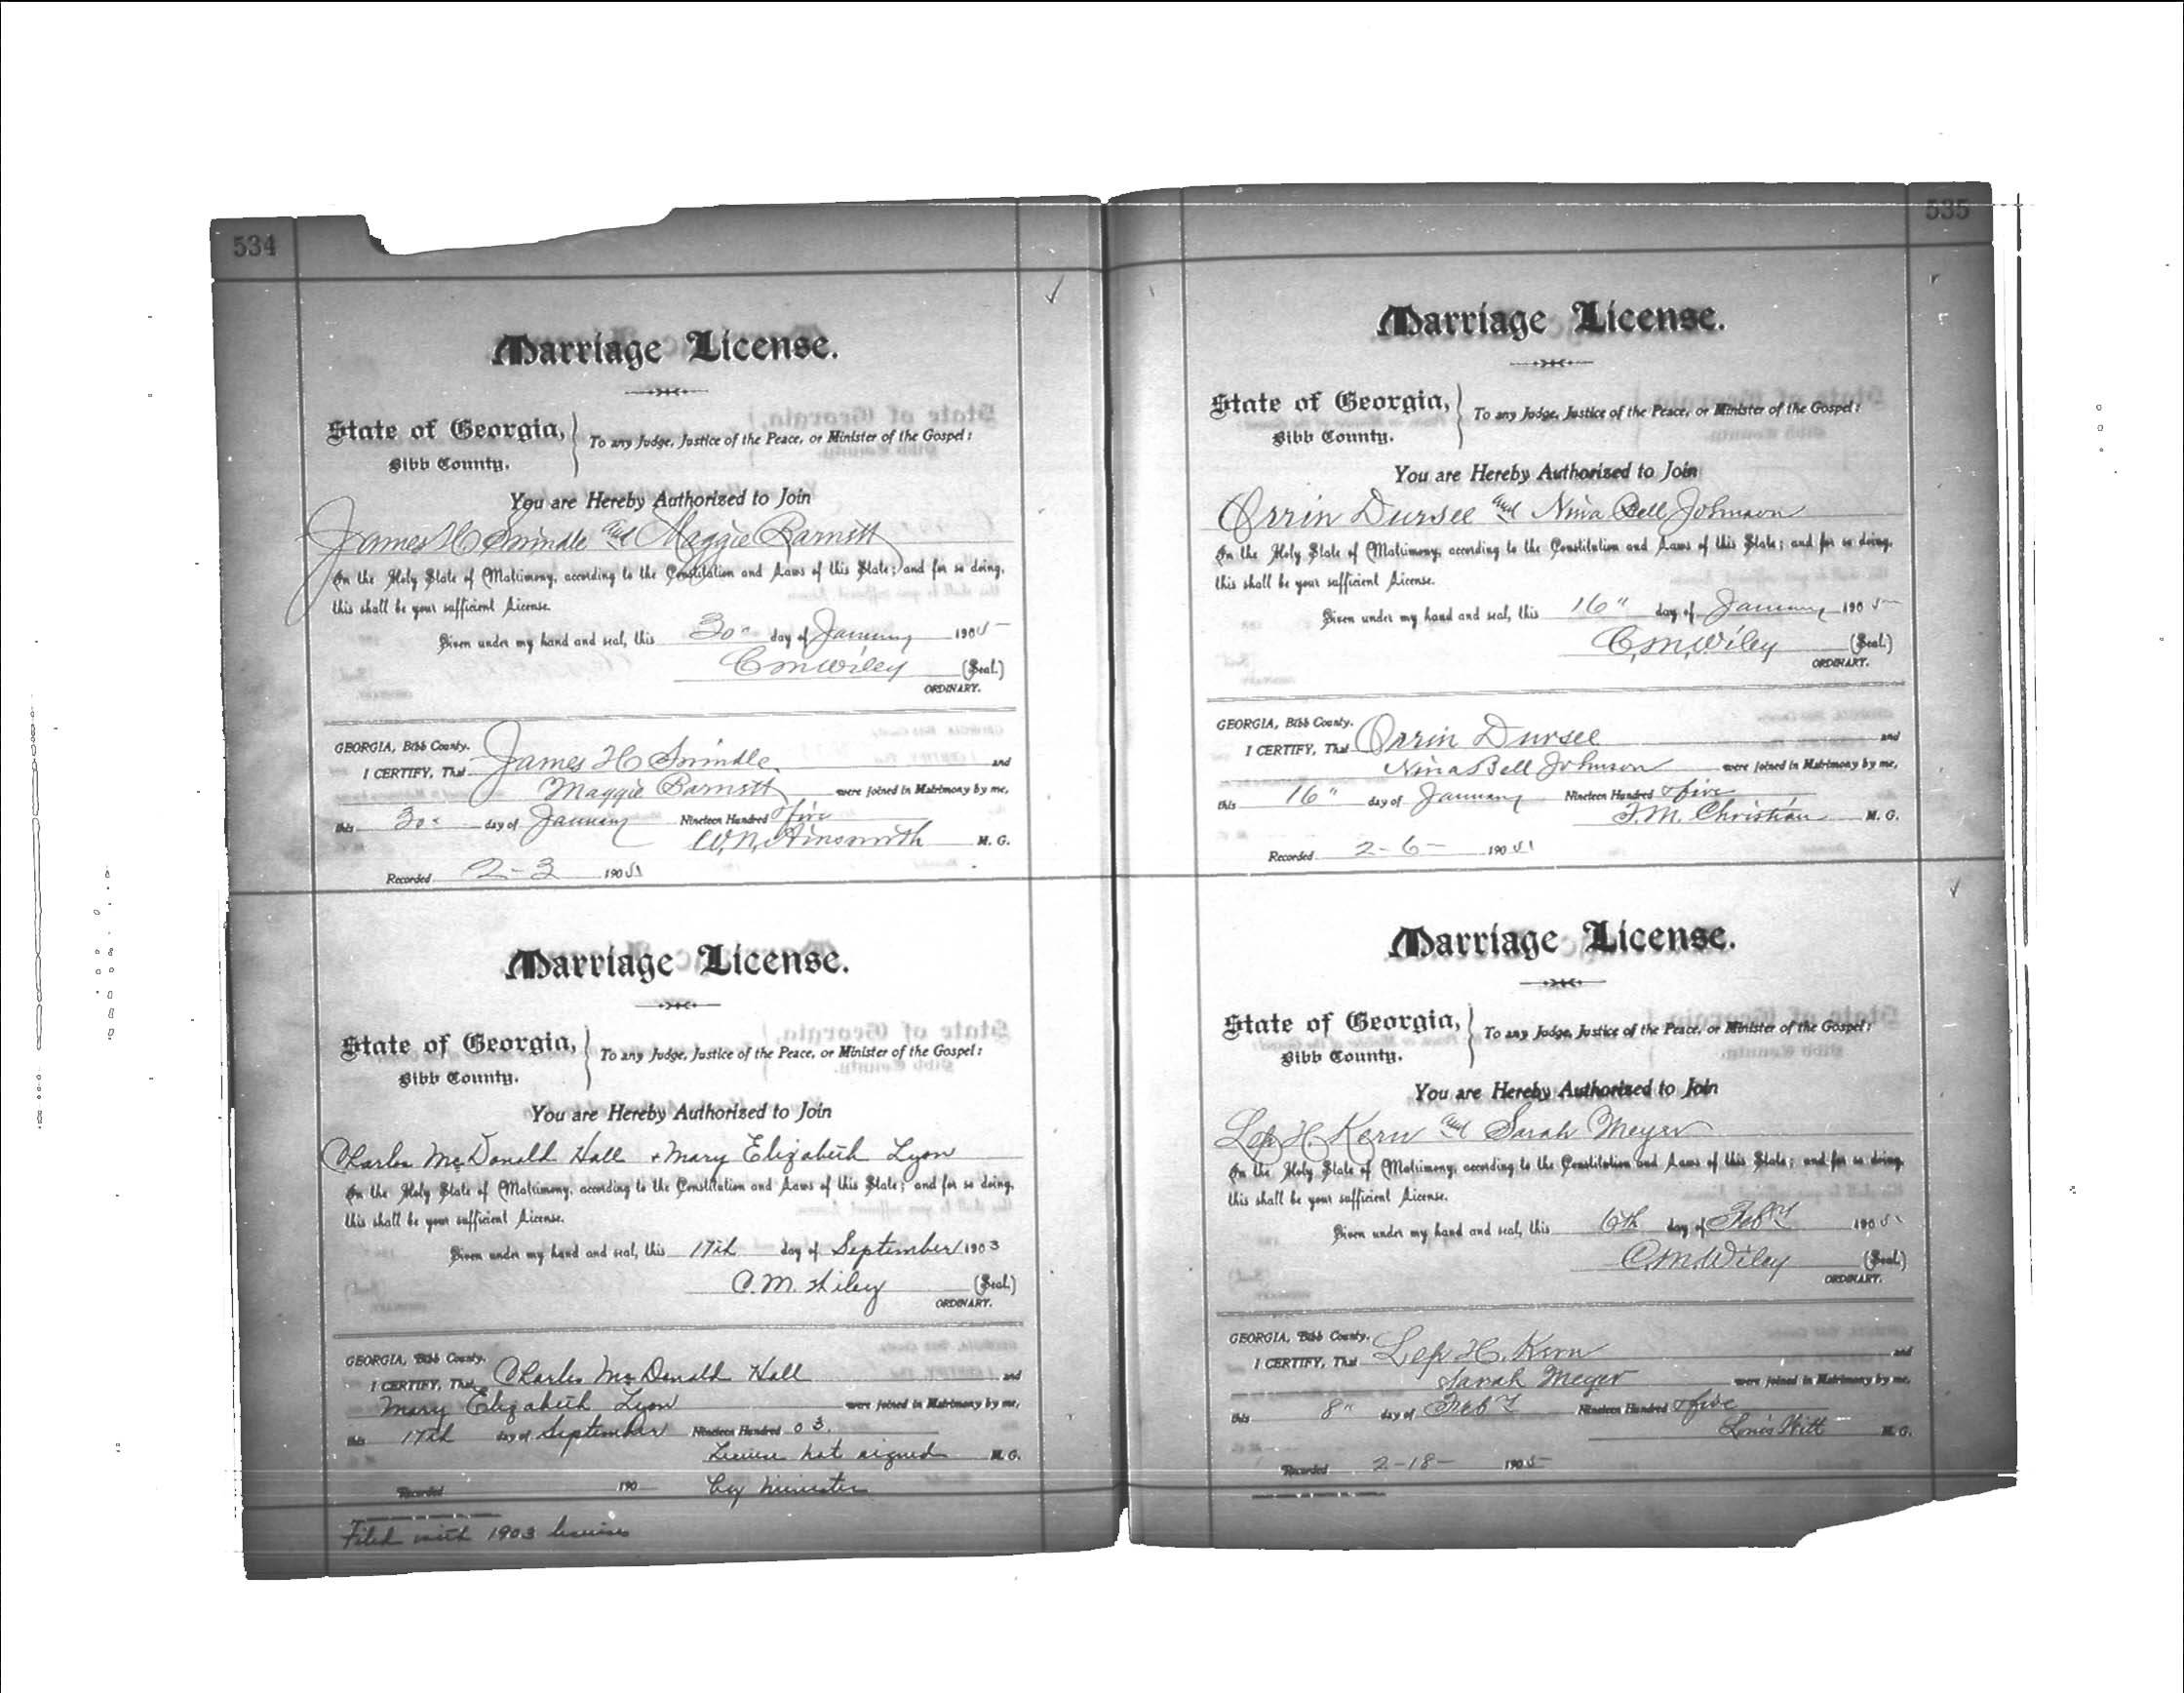 534
Marriage License.
State of Georgia,
Bibb County.
To any Judge, Justice of the Peace, or Minister of the Gospel:
You are Hereby Authorized to Join
James H Swindle and Maggie Barnett
In the Holy State of Matrimony, according to the Constitution and Laws of this State; and for so doing,
this shall be your sufficient License.
Given under my hand and seal, this 30" day of January 1905
C M Wiley (Seal.)
ORDINARY.
GEORGIA, Bibb County.
I CERTIFY, That James H Swindle and
Maggie Barnett were joined in Matrimony by me,
this 30" day of January Nineteen Hundred & five
W. N. Ainsworth M. G.
Recorded 2-3 1905
Marriage License.
State of Georgia,
Bibb County.
To any Judge, Justice of the Peace, or Minister of the Gospel:
You are Hereby Authorized to Join
Charles McDonald Hall + Mary Elizabeth Lyon
In the Holy State of Matrimony, according to the Constitution and Laws of this State; and for so doing,
this shall be your sufficient License.
Given under my hand and seal, this 17th day of September 1903
C. M. Wiley (Seal.)
ORDINARY.
GEORGIA, Bibb County.
I CERTIFY, That Charles McDonald Hall and
Mary Elizabeth Lyon were joined in Matrimony by me,
this 17th day of September Nineteen Hundred 03.
License not signed M. G.
Recorded 190 by minister
Filed with 1903 licenses
535
Marriage License.
State of Georgia,
Bibb County.
To any Judge, Justice of the Peace, or Minister of the Gospel:
You are Hereby Authorized to Join
Orrin Dursee and Nina Bell Johnson
In the Holy State of Matrimony, according to the Constitution and Laws of this State; and for so doing,
this shall be your sufficient License.
Given under my hand and seal, this 16" day of January 1905
C. M. Wiley (Seal.)
ORDINARY.
GEORGIA, Bibb County.
I CERTIFY, That Orrin Dursee and
Nina Bell Johnson were joined in Matrimony by me,
this 16" day of January Nineteen Hundred & five
T. M. Christian M. G.
Recorded 2-6- 1905
Marriage License.
State of Georgia,
Bibb County.
To any Judge, Justice of the Peace, or Minister of the Gospel:
You are Hereby Authorized to Join
Lep H Kern and Sarah Meyer
In the Holy State of Matrimony, according to the Constitution and Laws of this State; and for so doing,
this shall be your sufficient License.
Given under my hand and seal, this 6th day of Feby 1905
C. M. Wiley (Seal.)
ORDINARY.
GEORGIA, Bibb County.
I CERTIFY, That Lep H. Kern and
Sarah Meyer were joined in Matrimony by me,
this 8" day of Feby Nineteen Hundred & five
Louis Witt M. G.
Recorded 2-18- 1905